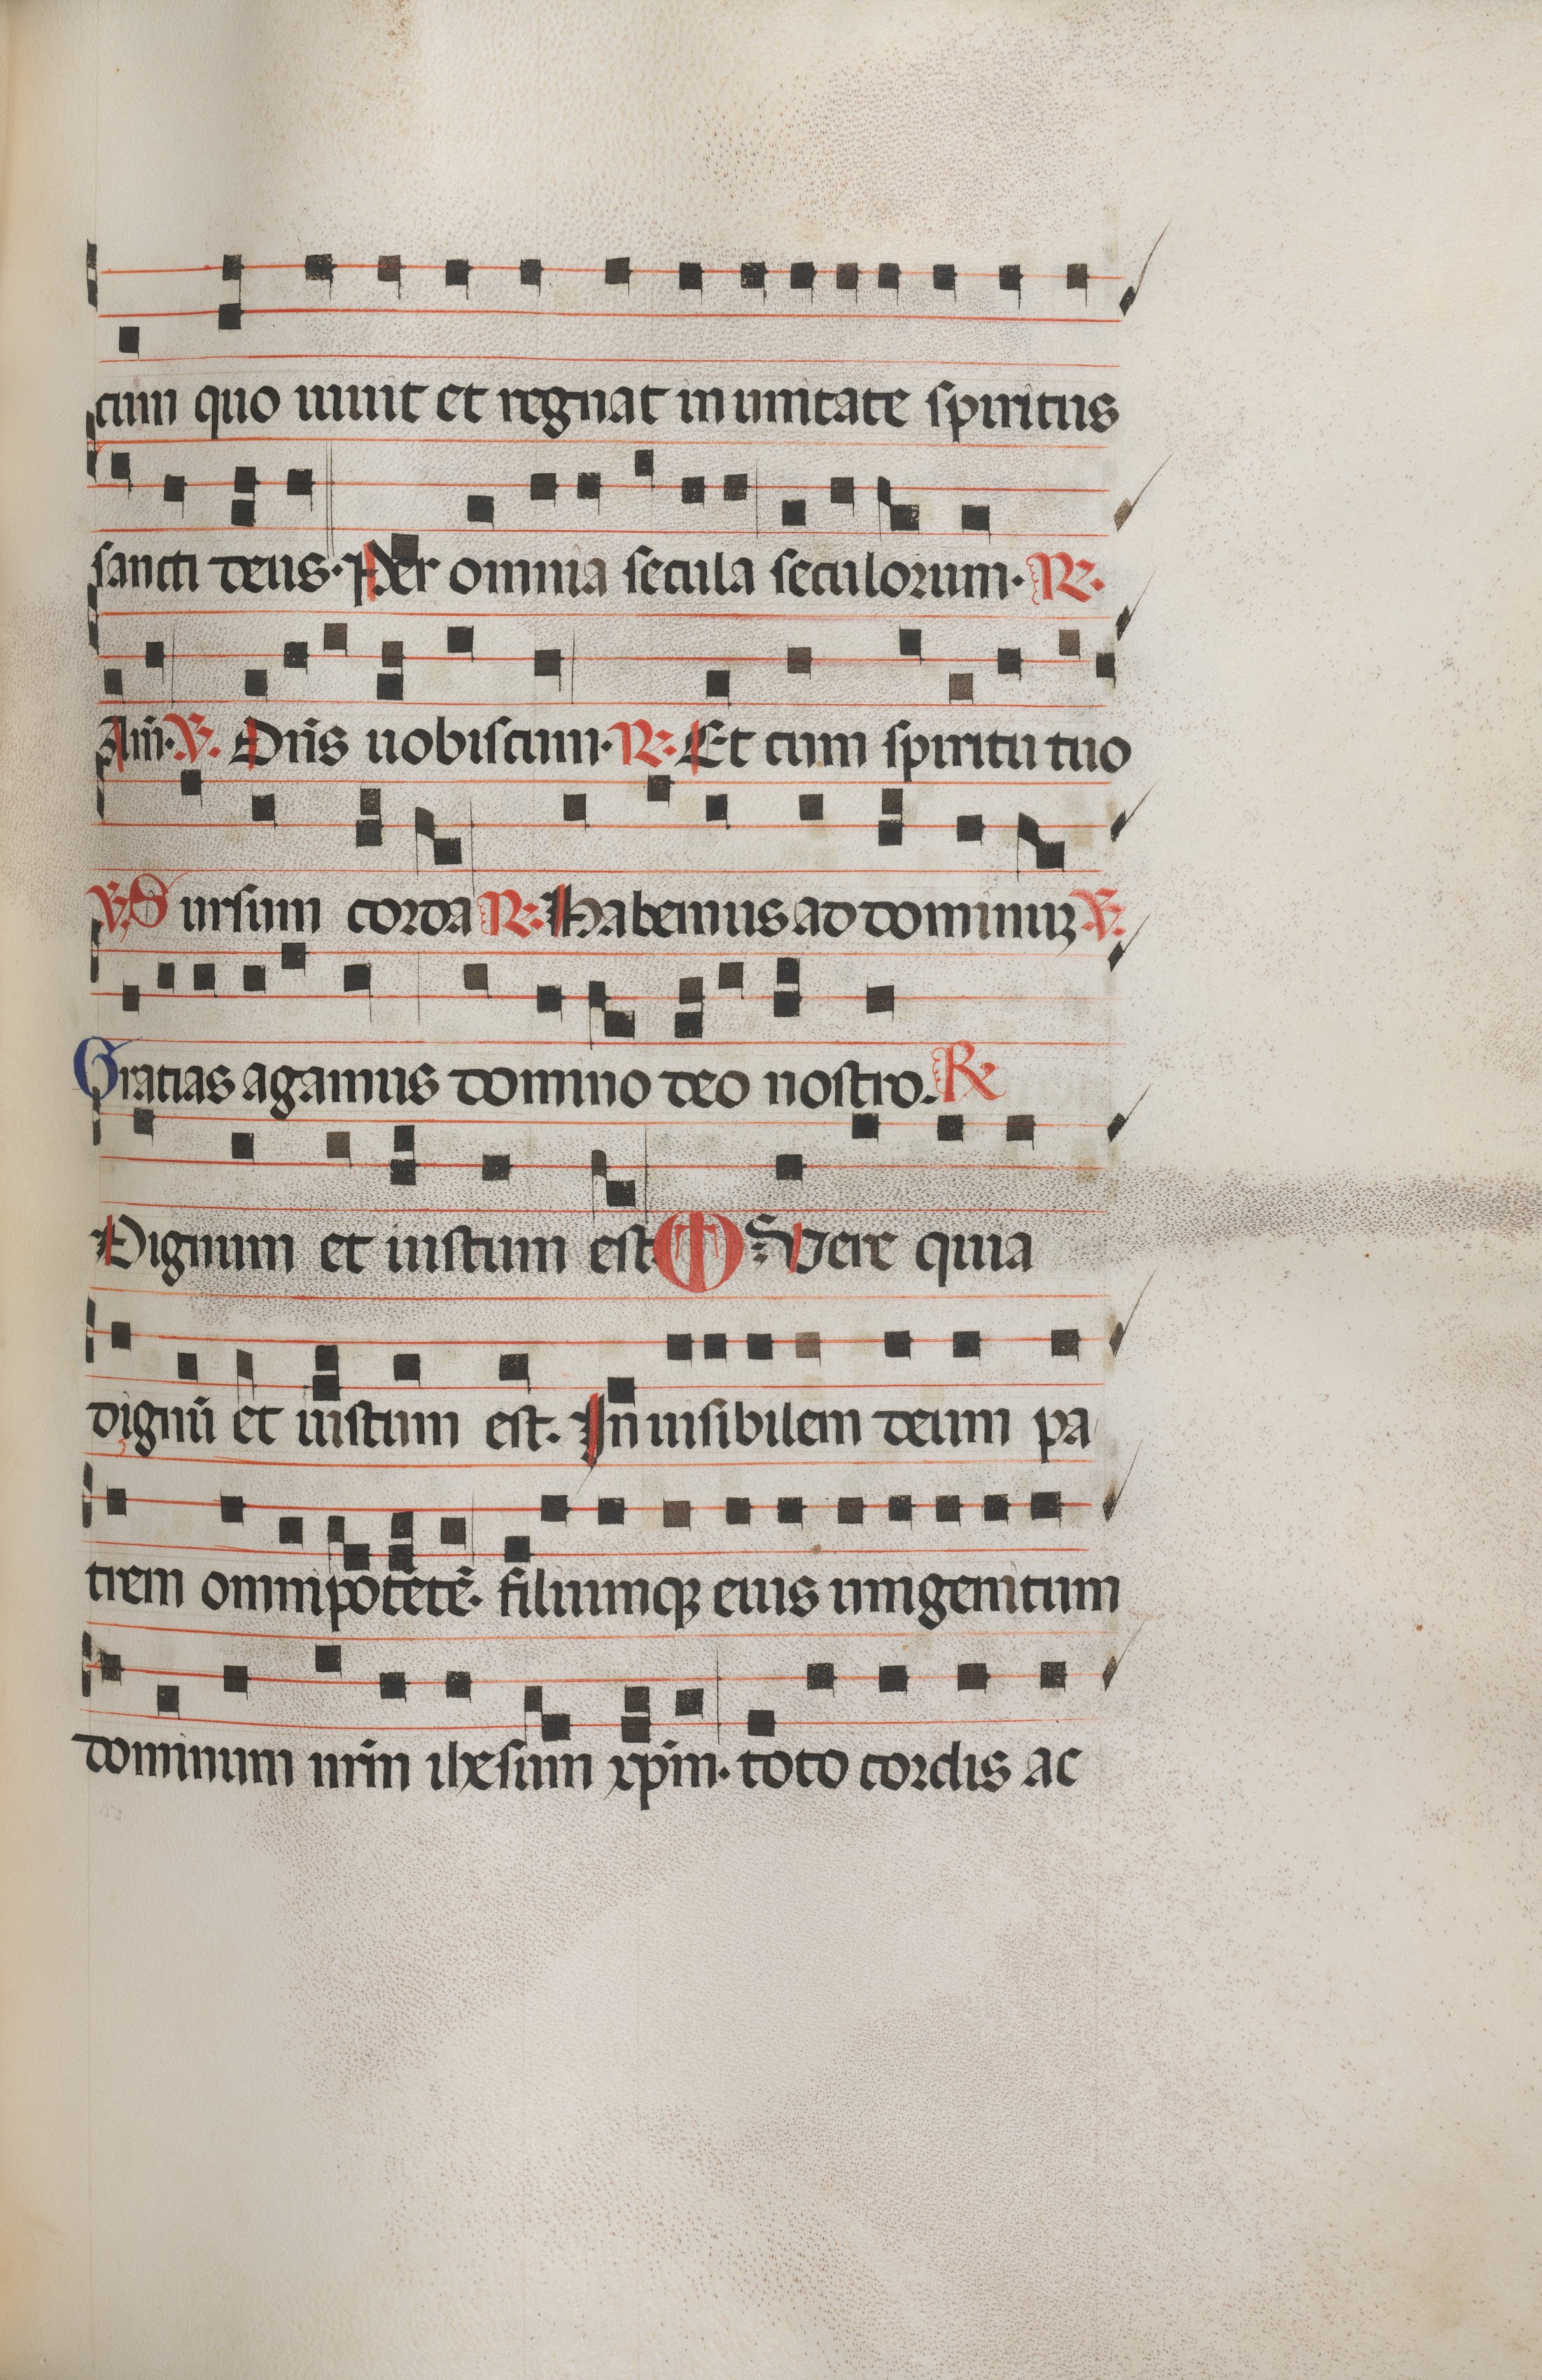 cum quo uiuit et regnat in unitate spiritus
sancti deus. Per omnia secula seculorum. R.
Am̄. V. Dn̄s uobiscum. R. Et cum spiritu tuo
V. Sursum corda R. Habemus ad dominuꝫ V.
Gratias agamus domino deo nostro. R
Dignum et iustum est Vere quia
dignū et iustum est. Inuisibilem deum pa
trem omnipotētē. filiumqꝫ eius unigenitum
dominum nr̄m ihesum xp̄m. toto cordis ac